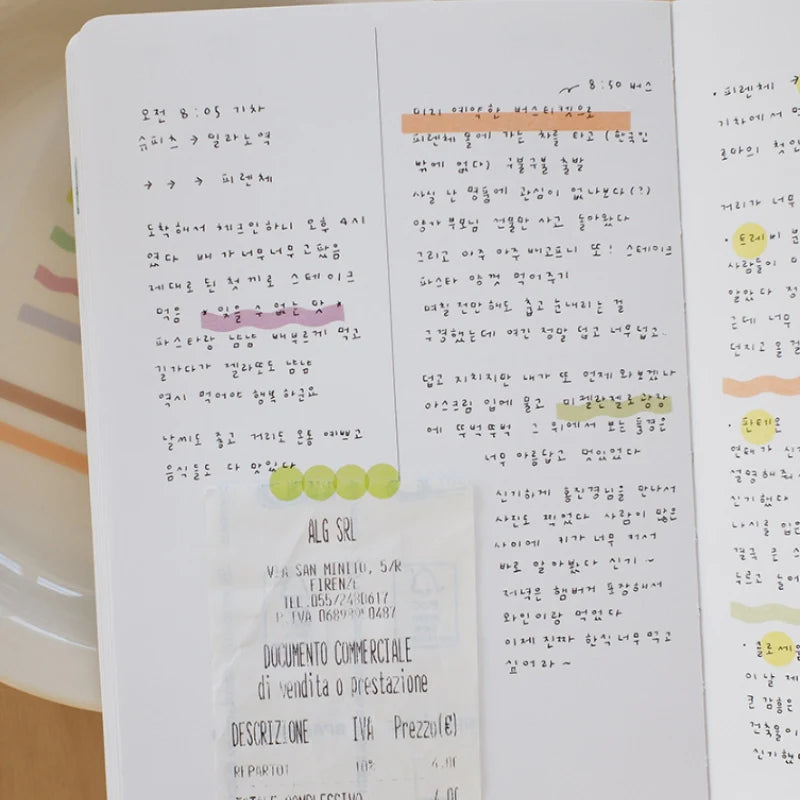 오전 8:05 기차
슈피츠 → 밀라노역
→ → → 피렌체
도착해서 체크인하니 오후 4시
였다 배가 너무너무 고팠음
제대로 된 첫 끼로 스테이크
먹음 *잊을 수 없는 맛*
파스타랑 냠냠 배부르게 먹고
길가다가 젤라또도 냠냠
역시 먹어야 행복하군요
날씨도 좋고 거리도 온통 예쁘고
음식들도 다 맛있다
ALG SRL
VIA SAN MINITO, 5/R
FIRENZE
TEL.055/2480617
DOCUMENTO COMMERCIALE
di vendita o prestazione
DESCRIZIONE IVA Prezzo(€)
REPARTO1 10%
8:50 버스
미리 예약한 버스티켓으로
피렌체 몰에 가는 차를 타고 (한국인
밖에 없다) 구불구불 출발
사실 난 명품에 관심이 없나보다(?)
양가부모님 선물만 사고 돌아왔다
그리고 아주 아주 배고프니 또! 스테이크
파스타 양껏 먹어주기
며칠 전만 해도 춥고 눈내리는 걸
구경했는데 여긴 정말 덥고 너무덥고..
덥고 지치지만 내가 또 언제 와보겠나
아스크림 입에 물고 미켈란젤로 광장
에 뚜벅뚜벅 그 위에서 보는 풍경은
너무 아름답고 멋있었다
신기하게 홍진경님을 만나서
사진도 찍었다 사람이 많은
사이에 키가 너무 커서
바로 알아봤다 신기~
저녁은 햄버거 포장해서
와인이랑 먹었다
이제 진짜 한식 너무 먹고
싶어라~
• 피렌체 →
기차에서
로마의 첫인
거리가 너무
• 트레비 분
사람들이
알았다 정
근데 너무
던지고 올 걸
• 판테온
연해가 신기
설명해줘
신기했다
나시를 입은
결국 큰 스
두르고 들어
• 콜로세움
이 날 제
큰 감흥은
건축물이
신기했